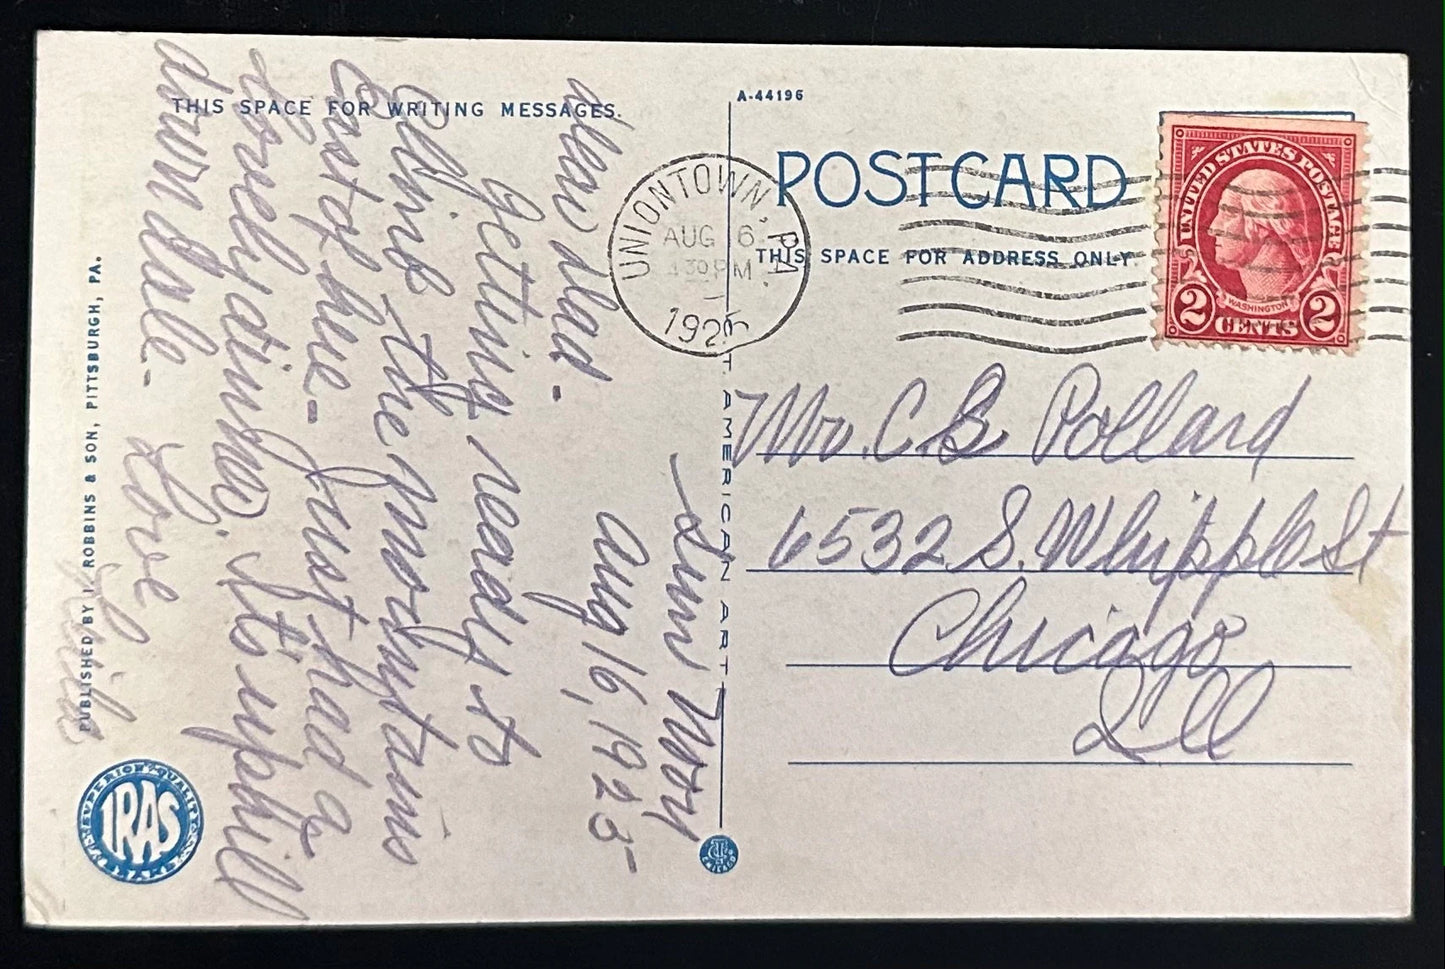 THIS SPACE FOR WRITING MESSAGES.
A-44196
POST CARD
THIS SPACE FOR ADDRESS ONLY.
UNIONTOWN, PA.
AUG 6
430 PM
192
UNITED STATES POSTAGE
WASHINGTON
2 CENTS 2
Sun Morn
Aug 16, 1925
Dear Dad -
Getting ready to
Climb the mountains
East of here - Just had a
lovely dinner. Its uphill
down Dale - Love
Mr. C. B. Pollard
6532 S. Whipple St
Chicago
Ill
PUBLISHED BY I. ROBBINS & SON, PITTSBURGH, PA.
T AMERICAN ART
SUPERIOR QUALITY
IRAS
CHICAGO